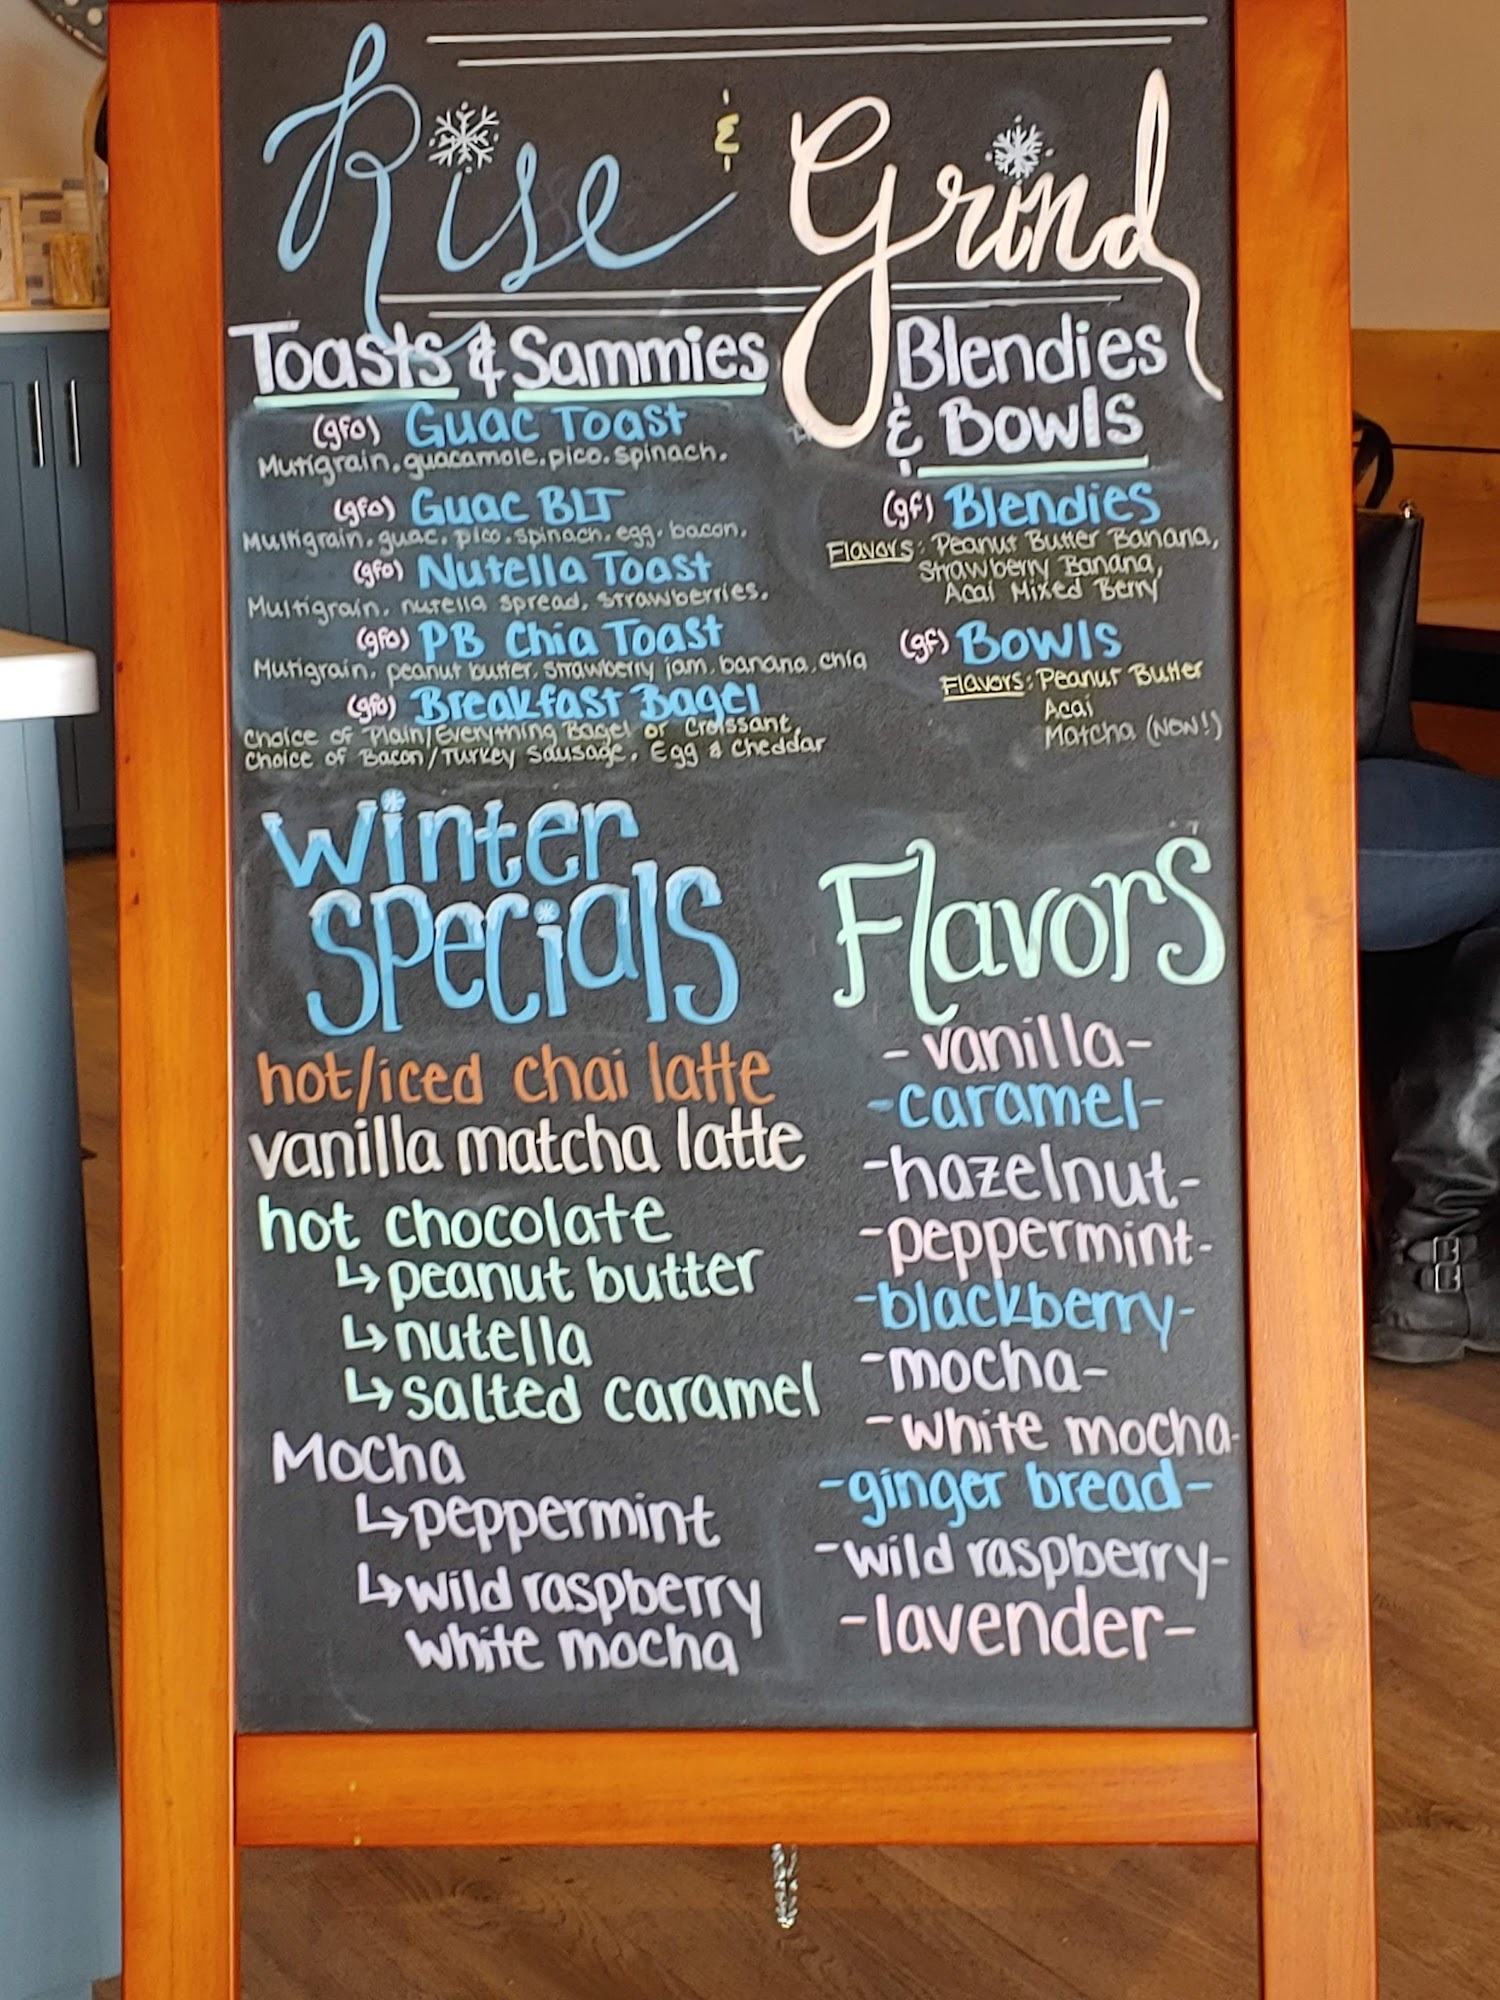 Rise & Grind
Toasts & Sammies
(gfo) Guac Toast
Mutigrain, guacamole, pico, spinach.
(gfo) Guac BLT
Multigrain, guac, pico, spinach, egg, bacon.
(gfo) Nutella Toast
Multigrain, nutella spread, strawberries.
(gfo) PB Chia Toast
Mutigrain, peanut butter, strawberry jam, banana, chia
(gfo) Breakfast Bagel
Choice of Plain/Everything Bagel or Croissant,
Choice of Bacon/Turkey Sausage, Egg & Cheddar
Blendies
& Bowls
(gf) Blendies
Flavors: Peanut Butter Banana,
Strawberry Banana,
Acai Mixed Berry
(gf) Bowls
Flavors: Peanut Butter
Acai
Matcha (NEW!)
Winter
Specials
hot/iced chai latte
vanilla matcha latte
hot chocolate
↳ peanut butter
↳ nutella
↳ salted caramel
Mocha
↳ peppermint
↳ wild raspberry
white mocha
Flavors
- vanilla -
- caramel -
- hazelnut -
- peppermint -
- blackberry -
- mocha -
- white mocha -
- ginger bread -
- wild raspberry -
- lavender -